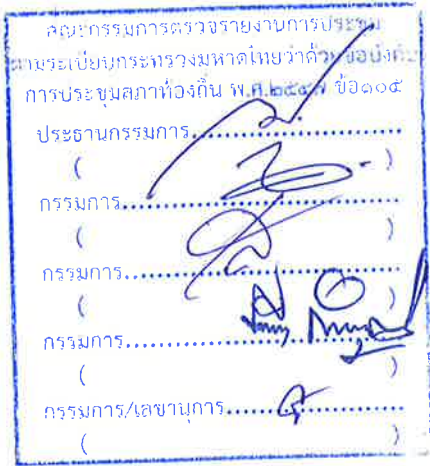 คณะกรรมการตรวจรายงานการประชุม
ตามระเบียบกระทรวงมหาดไทยว่าด้วยข้อบังคับ
การประชุมสภาท้องถิ่น พ.ศ.๒๕๔๗ ข้อ๑๑๕
ประธานกรรมการ....................
( )
กรรมการ..............................
( )
กรรมการ..............................
( )
กรรมการ..............................
( )
กรรมการ/เลขานุการ..................
( )